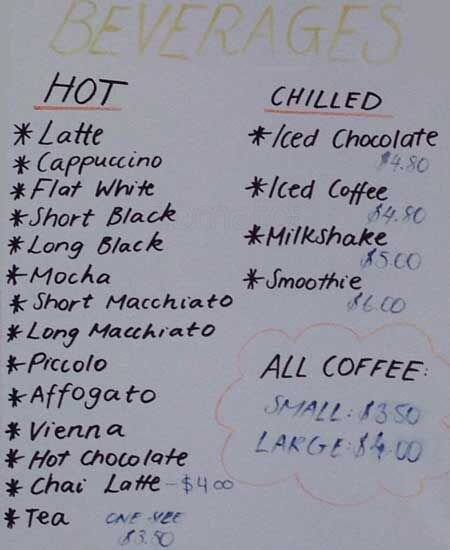 BEVERAGES
HOT
* Latte
* Cappuccino
* Flat White
* Short Black
* Long Black
* Mocha
* Short Macchiato
* Long Macchiato
* Piccolo
* Affogato
* Vienna
* Hot Chocolate
* Chai Latte - $4.00
* Tea ONE SIZE
$3.50
CHILLED
* Iced Chocolate
$4.80
* Iced Coffee
$4.80
* Milkshake
$5.00
* Smoothie
$6.00
ALL COFFEE:
SMALL: $3.50
LARGE: $4.00